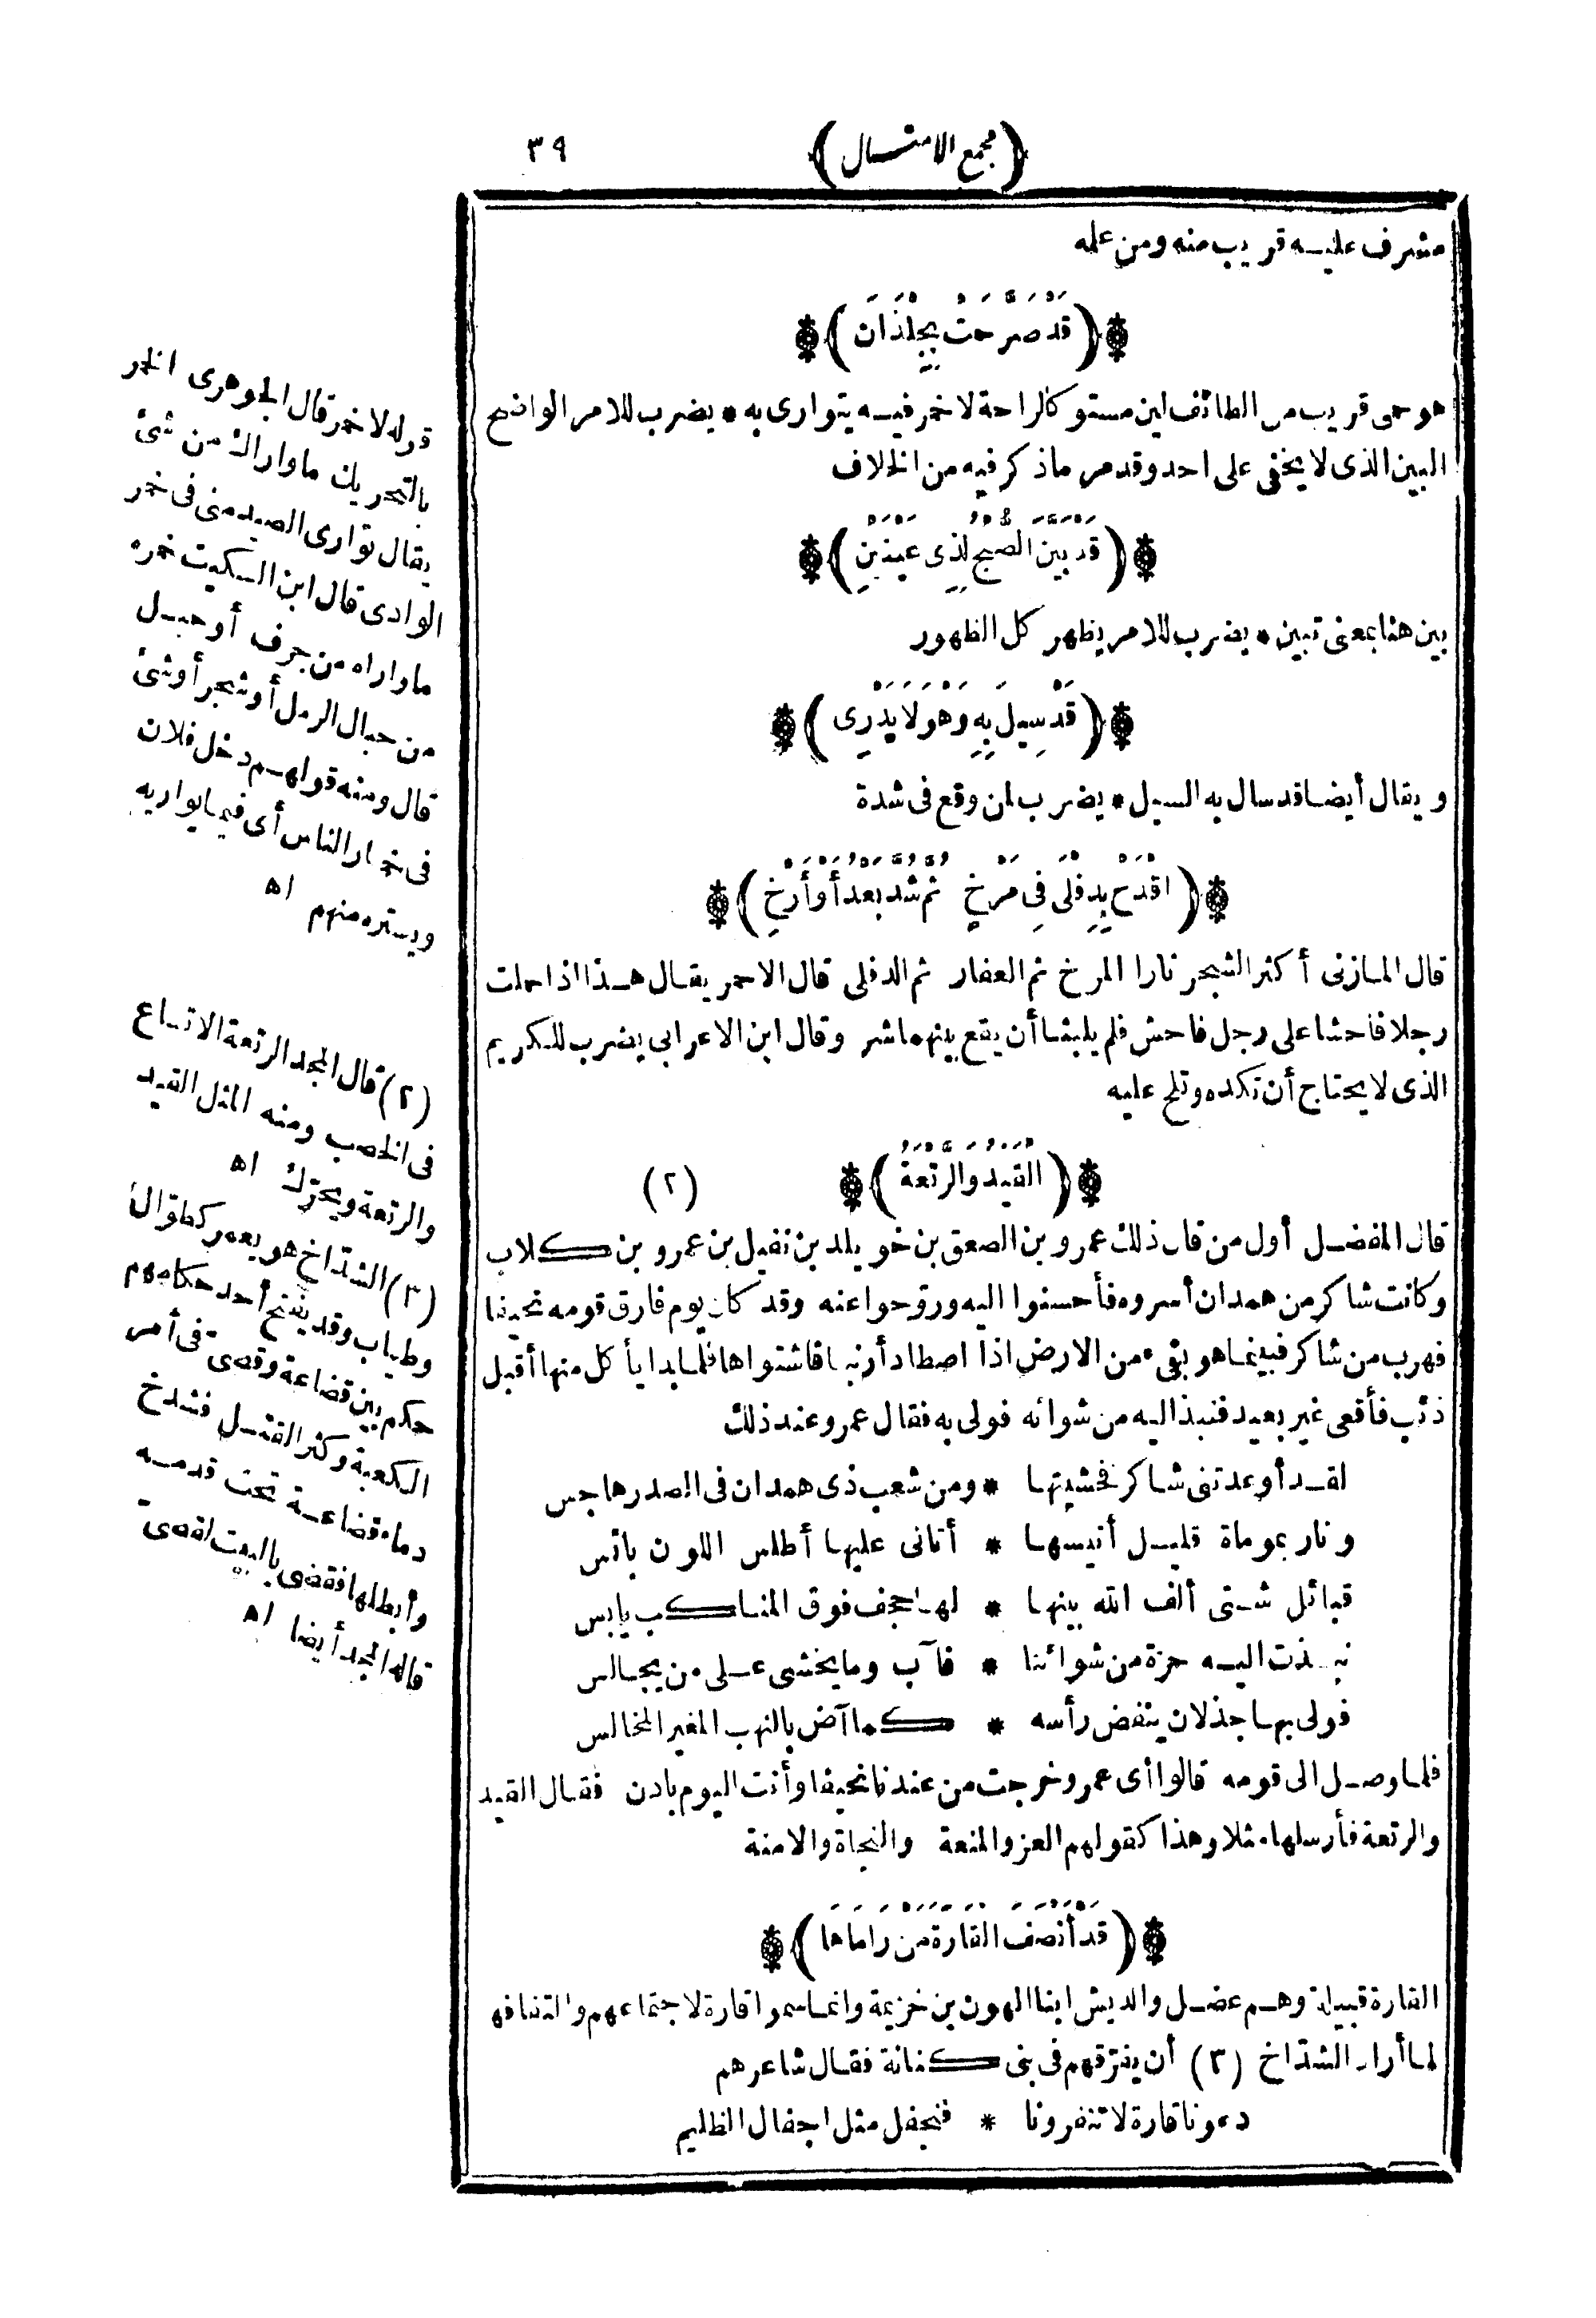 ﴿ مجمع الامثال ﴾ ٣٩
مشرف عليه قريب منه ومن علمه
﴿ قَدْ صَرَّحَتْ بِجِلْذَانَ ﴾
هو حمى قريب من الطائف لين مستو كالراحة لا خمر فيه يتوارى به * يضرب للامر الواضح
البين الذى لا يخفى على احد وقد مر ماذكر فيه من الخلاف
﴿ قَدْ بَيَّنَ الصُّبْحُ لِذِى عَيْنَيْنِ ﴾
بين هنا بمعنى تبين * يضرب للامر يظهر كل الظهور
﴿ قَدْ سِيلَ بِهِ وَهْوَ لَا يَدْرِى ﴾
ويقال أيضا قد سال به السيل * يضرب لمن وقع فى شدة
﴿ اقْدَحْ بِدِفْلَى فِى مَرْخٍ ثُمَّ شُدَّ بَعْدُ أَوْ أَرْخِ ﴾
قال المازنى أكثر الشجر نارا المرخ ثم العفار ثم الدفلى قال الاحمر يقال هذا اذا حملت
رجلا فاحشا على رجل فاحش فلم يلبثا أن يقع بينهما شر وقال ابن الاعرابى يضرب للكريم
الذى لا يحتاج أن تكده وتلح عليه
﴿ القَيْدُ وَالرَّتْعَةُ ﴾ (٢)
قال المفضل أول من قال ذلك عمرو بن الصعق بن خويلد بن نفيل بن عمرو بن كلاب
وكانت شاكر من همدان أسروه فأحسنوا اليه وروّحوا عنه وقد كان يوم فارق قومه نحيفا
فهرب من شاكر فبينما هو بقىء من الارض اذا اصطاد أرنبا فاشتواها فلما بدا يأكل منها أقبل
ذئب فأقعى غير بعيد فنبذ اليه من شوائه فولى به فقال عمرو عند ذلك
لقد أوعدتنى شاكر فخشيتها * ومن شعب ذى همدان فى الصدر هاجس
ونار بموماة قليل أنيسها * أتانى عليها أطلس اللون بائس
قبائل شتى ألف الله بينها * لها حجف فوق المناكب يابس
نبذت اليه حزة من شوائنا * فآب وما يخشى على من يجالس
فولى بها جذلان ينفض رأسه * كما آض بالنهب المغير المخالس
فلما وصل الى قومه قالوا أى عمرو خرجت من عندنا نحيفا وأنت اليوم بادن فقال القيد
والرتعة فأرسلها مثلا وهذا كقولهم العز والمنعة والنجاة والامنة
﴿ قَدْ أَنْصَفَ القَارَةَ مَنْ رَامَاهَا ﴾
القارة قبيلة وهم عضل والديش ابنا الهون بن خزيمة وانما سموا قارة لاجتماعهم والتفافهم
لما أراد الشدّاخ (٣) أن يفرّقهم فى بنى كنانة فقال شاعرهم
دعونا قارة لا تنفرونا * فنجفل مثل اجفال الظليم
قوله لا خمر قال الجوهرى الخمر
بالتحريك ماواراك من شئ
يقال توارى الصيد منى فى خمر
الوادى قال ابن السكيت خمره
ماواراه من جرف أو حبل
من حبال الرمل أو شجر أو شئ
قال ومنه قولهم دخل فلان
فى خمار الناس أى فيما يواريه
ويستره منهم اه
(٢) قال المجد الرتعة الاتساع
فى الخصب ومنه المثل القيد
والرتعة ويحرّك اه
(٣) الشدّاخ هو يعمر كطوّال
وطياب وقد يفتح أحد حكامهم
حكم بين قضاعة وقصىّ فى أمر
الكعبة وكثر القتل فشدخ
دماء قضاعة تحت قدمه
وأبطلها فقضى بالبيت لقصىّ
قاله المجد أيضا اه